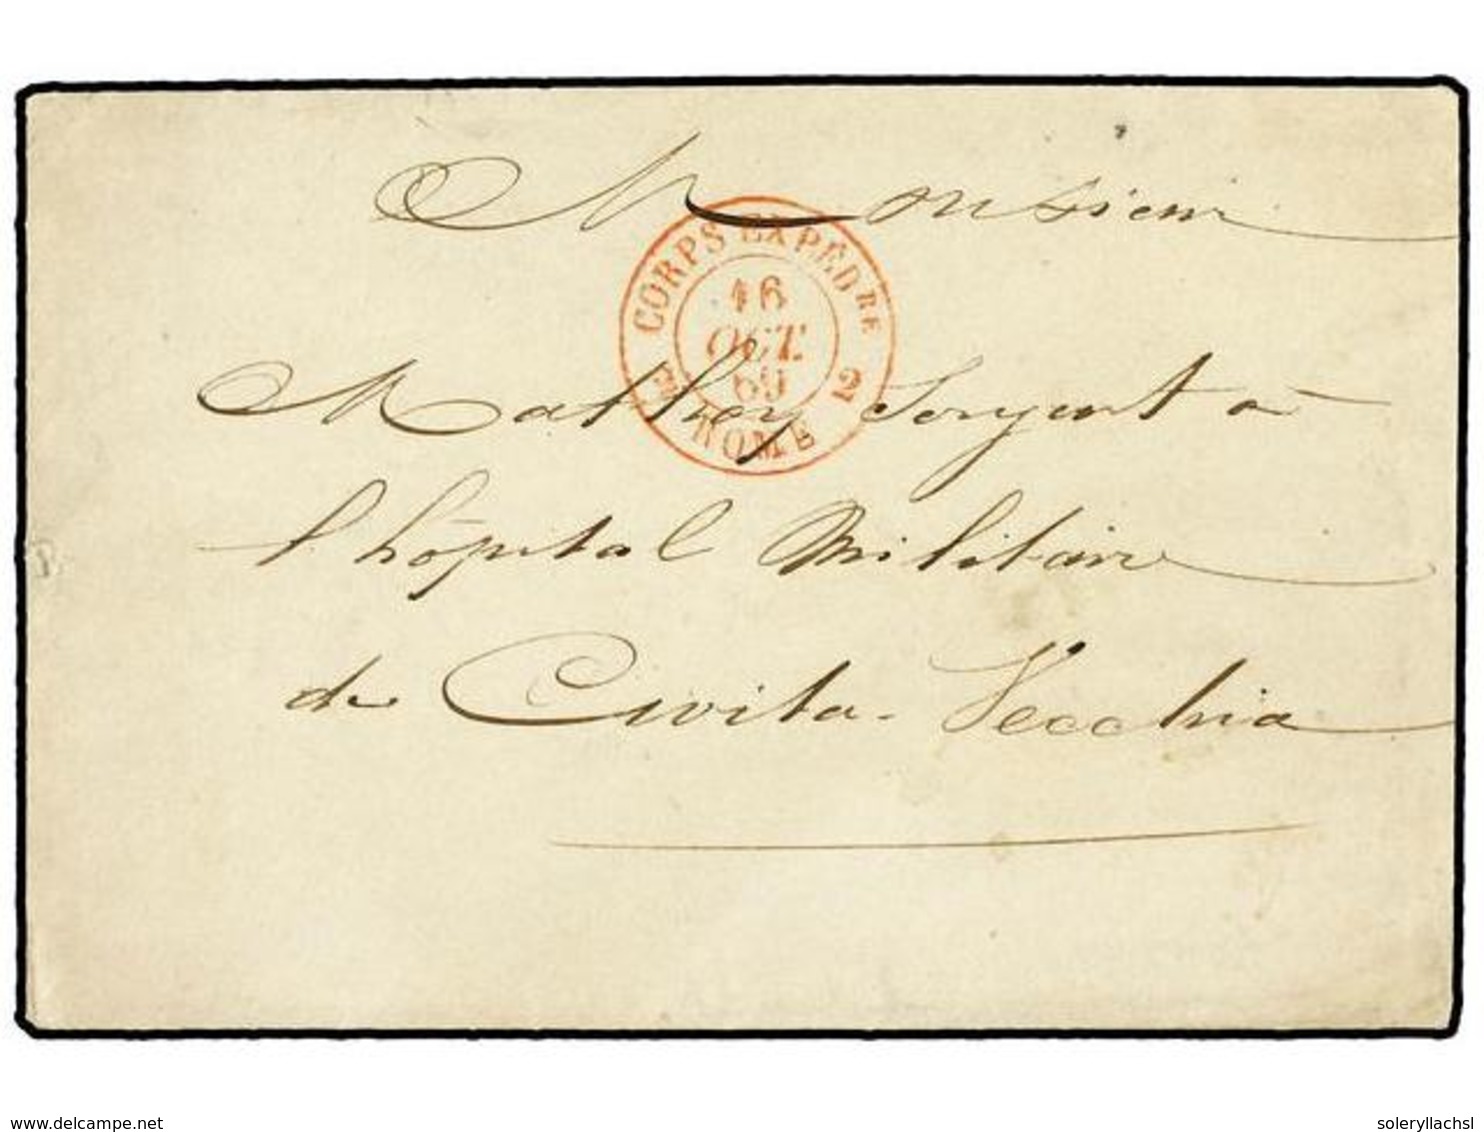 Monsieur
CORPS EXPÉDRE
16
OCT.
69
2
ROME
Mathey Sergent à
l'hôpital Militaire
de Civita-Vecchia
delcampe.net
soleryllachsl